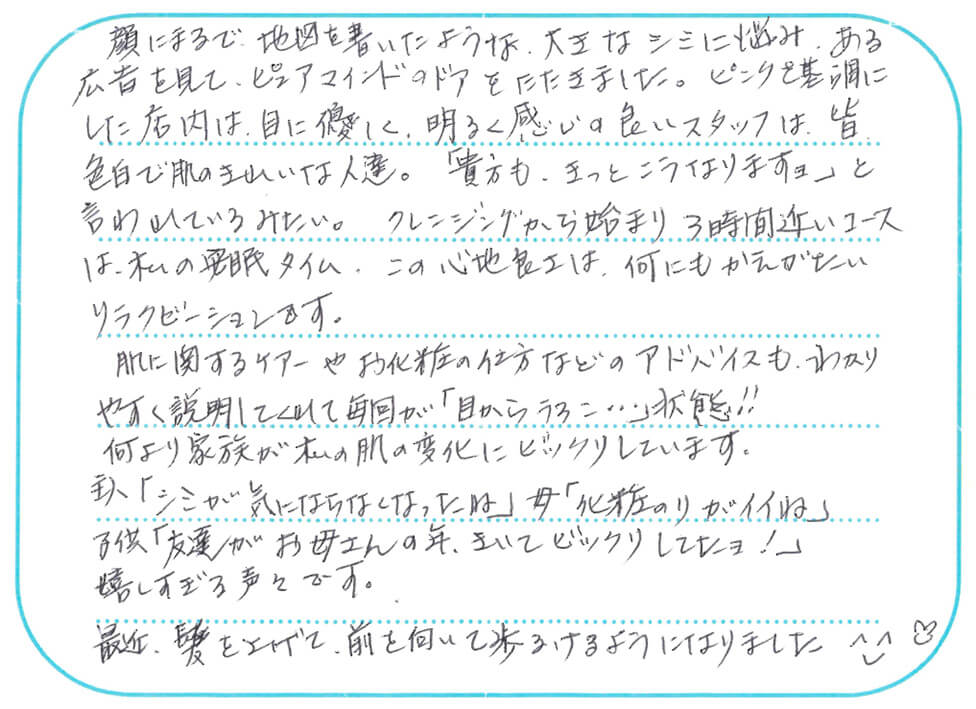 顔にまるで、地図を書いたような、大きなシミに悩み、ある
広告を見て、ピュアマインドのドアをたたきました。ピンクを基調に
した店内は、目に優しく、明るく感じの良いスタッフは、皆、
色白で肌のきれいな人達。「貴方も、きっとこうなりますョ」と
言われているみたい。クレンジングから始まり3時間近いコース
は、私の安眠タイム、この心地良さは、何にもかえがたい
リラクゼーションです。
肌に関するケアーやお化粧の仕方などのアドバイスも、わかり
やすく説明してくれて毎回が「目からうろこ…」状態!!
何より家族が私の肌の変化にビックリしています。
主人「シミが気にならなくなったね」母「化粧のりがイイね」
子供「友達がお母さんの年、きいてビックリしてたョ!」
嬉しすぎる声々です。
最近、髪を上げて、前を向いて歩るけるようになりました